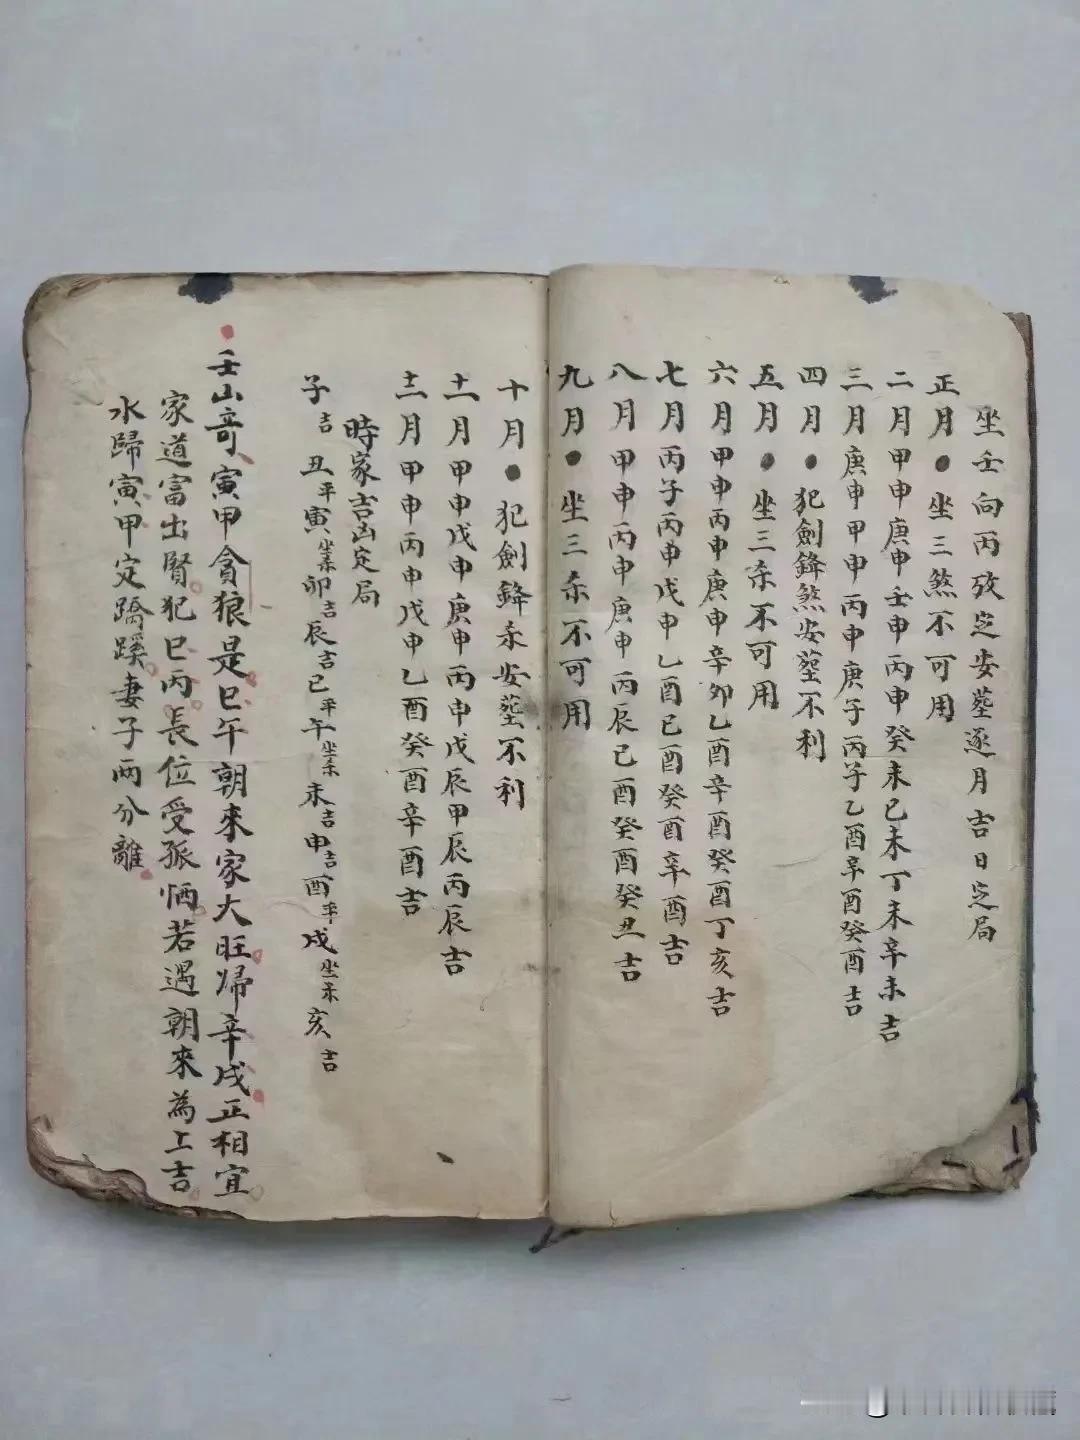 坐壬向丙攷定安塟逐月吉日定局
正月●坐三煞不可用
二月甲申庚申壬申丙申癸未己未丁未辛未吉
三月庚申甲申丙申庚子丙子乙酉辛酉癸酉吉
四月●犯劍鋒煞安塟不利
五月●坐三杀不可用
六月甲申丙申庚申辛卯乙酉辛酉癸酉丁亥吉
七月丙子丙申戊申乙酉己酉癸酉辛酉吉
八月甲申丙申庚申丙辰己酉癸酉癸丑吉
九月●坐三杀不可用
十月●犯劍鋒杀安塟不利
十一月甲申戊申庚申丙申戊辰甲辰丙辰吉
十二月甲申丙申戊申乙酉癸酉辛酉吉
時家吉凶定局
子吉丑平寅坐杀卯吉辰吉巳平午坐杀未吉申吉酉平戌坐杀亥吉
壬山竒寅甲貪狼是巳午朝來家大旺歸辛戌正相宜
家道富出賢犯巳丙長位受孤恓若遇朝來為上吉
水歸寅甲定蹻蹊妻子兩分離